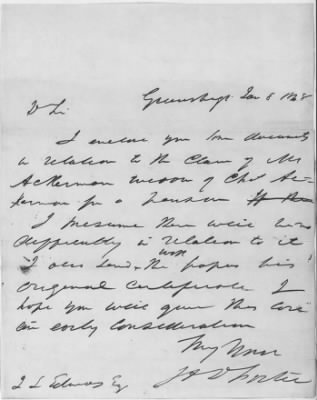 Greensburgh Jan 8 1848
D Sir
I enclose you some documents
in relation to the Claim of Mrs
Ackerman widow of Chs Ac-
kerman for a Pension
I presume there will be no
difficulty in relation to it
I also send with the papers his
original Certificate I
hope you will give this case
an early consideration
Very
J L Edwards Esq